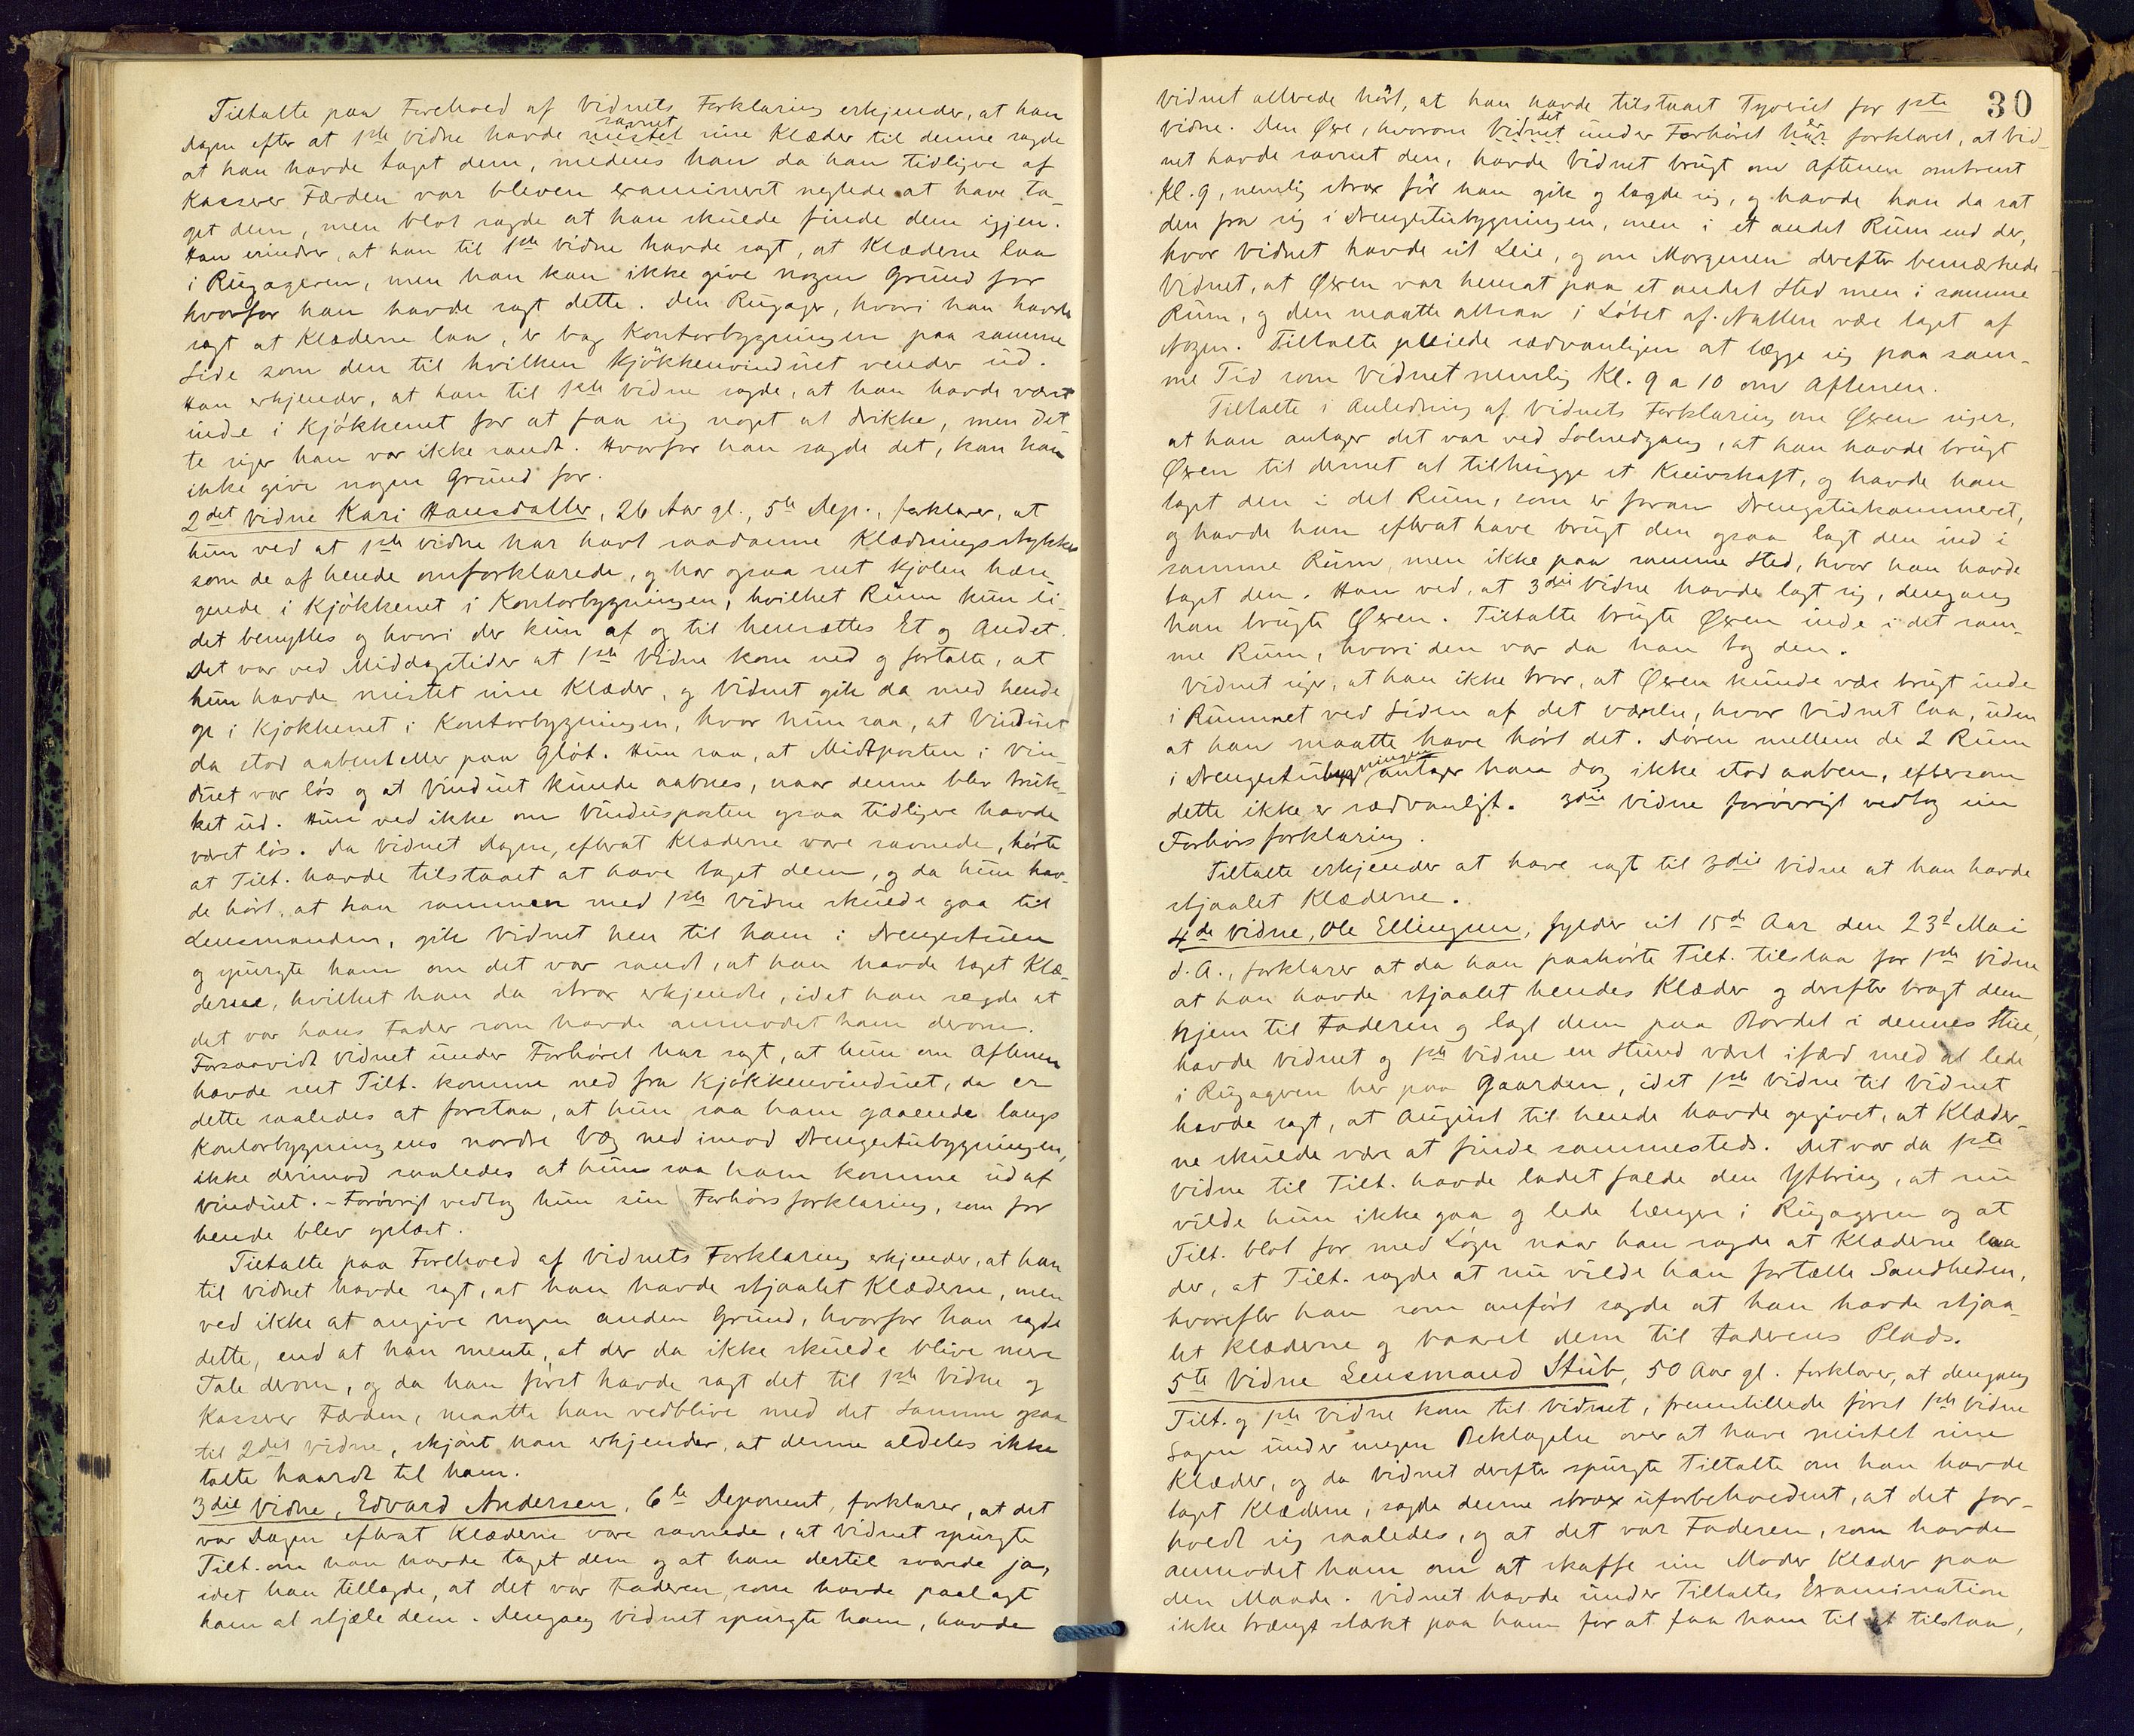 Tiltalte paa Forehold af Vidnets Forklaring erkjender, at han
Dagen efter at 1ste Vidne havde mistet savnet sine Klæder til denne sagde
at han havde taget dem, medens han da han tidligere af
Kasserer Færden var bleven examineret negtede at have ta-
get dem, men blot sagde at han skulde finde dem igjen.
Han erindrer, at han til 1ste Vidne havde sagt, at Klæderne laa
i Rugageren, men han kan ikke give nogen Grund for
hvorfor han havde sagt dette. Den Rugager, hvori han havde
sagt at Klæderne laa, er bag Kontorbygningen paa samme
Side som den til hvilken Kjøkkenvinduet vender ud.
Han erkjender, at han til 1ste Vidne sagde, at han havde været
inde i Kjøkkenet for at faa sig noget at drikke, men det-
te siger han var ikke sandt. Hvorfor han sagde det, kan han
ikke give nogen Grund for.
2det Vidne Kari Hansdatter, 26 Aar gl., 5te Dep., forklarer, at
hun ved at 1ste Vidne har havt saadanne Klædningsstykker
som de af hende omforklarede, og har ogsaa set Kjolen hæn-
gende i Kjøkkenet i Kontorbygningen, hvilket Rum kun li-
det benyttes og hvori der kun af og til hensættes Et og Andet.
Det var ved Middagstider at 1ste Vidne kom ned og fortalte, at
hun havde mistet sine Klæder, og Vidnet gik da med hende
op i Kjøkkenet i Kontorbygningen, hvor hun saa, at Vinduet
da stod aabent eller paa Gløt. Hun saa, at Midtposten i Vin-
duet var løs og at Vinduet kunde aabnes, naar denne blev truk-
ket ud. Hun ved ikke om Vindusposten ogsaa tidligere havde
været løs. Da Vidnet Dagen, efterat Klæderne vare savnede, hørte
at Tilt. havde tilstaaet at have taget dem, og da hun hav-
de hørt, at han sammen med 1ste Vidne skulde gaa til
Lensmanden, gik Vidnet hen til ham i Drengestuen
og spurgte ham om det var sandt, at han havde taget Klæ-
derne, hvilket han da strax erkjendte, idet han sagde at
det var hans Fader som havde anmodet ham derom.
Forsaavidt Vidnet under Forhøret har sagt, at hun om Aftenen
havde set Tilt. komme ned fra Kjøkkenvinduet, da er
dette saaledes at forstaa, at hun saa ham gaaende langs
Kontorbygningens nordre Væg ned imod Drengestubygningen,
ikke derimod saaledes at hun saa ham komme ud af
Vinduet. – Forøvrigt vedtog hun sin Forhørsforklaring, som for
hende blev oplæst.
Tiltalte paa Forehold af Vidnets Forklaring erkjender, at han
til Vidnet havde sagt, at han havde stjaalet Klæderne, men
ved ikke at angive nogen anden Grund, hvorfor han sagde
dette, end at han mente, at der da ikke skulde blive mere
Tale derom, og da han først havde sagt det til 1ste Vidne og
Kasserer Færden, maatte han vedblive med det samme ogsaa
til 2det Vidne, skjønt han erkjender, at denne aldeles ikke
talte haardt til ham.
3die Vidne, Edvard Andersen, 6te Deponent, forklarer, at det
var Dagen efterat Klæderne vare savnede, at Vidnet spurgte
Tilt. om han havde taget dem og at han dertil svarede ja,
idet han tillagde, at det var Faderen, som havde paalagt
ham at stjæle dem. Dengang Vidnet spurgte ham, havde
30
Vidnet allerede hørt, at han havde tilstaaet Tyveriet for 1ste
Vidne. Den Øxe, hvorom Vidnet det under Forhøret har er forklaret, at Vid-
net havde savnet den, havde Vidnet brugt om Aftenen omtrent
Kl. 9, nemlig strax før han gik og lagde sig, og havde han da sat
den fra sig i Drengestubygningen, men i et andet Rum end der,
hvor Vidnet havde sit Leie, og om Morgenen derefter bemærkede
Vidnet, at Øxen var hensat paa et andet Sted men i samme
Rum, og den maatte altsaa i Løbet af Natten være taget af
Nogen. Tiltalte pleiede sædvanligen at lægge sig paa sam-
me Tid som Vidnet nemlig Kl. 9 a 10 om Aftenen.
Tiltalte i Anledning af Vidnets Forklaring om Øxen siger,
at han antager det var ved Solnedgang, at han havde brugt
Øxen til dermed at tilhugge et Knivskaft, og havde han
taget den i det Rum, som er foran Drengestukammeret,
og havde han efterat have brugt den ogsaa lagt den ind i
samme Rum, men ikke paa samme Sted, hvor han havde
taget den. Han ved, at 3die Vidne havde lagt sig, dengang
han brugte Øxen. Tiltalte brugte Øxen inde i det sam-
me Rum, hvori den var da han tog den.
Vidnet siger, at han ikke tror, at Øxen kunde være brugt inde
i Rummet ved Siden af det Værelse, hvor Vidnet laa, uden
at han maatte have hørt det. Døren mellem de 2 Rum
i Drengestubygningen antager han dog ikke stod aaben, eftersom
dette ikke er sædvanligt. 3die Vidne forøvrigt vedtog sin
Forhørsforklaring.
Tiltalte erkjender at have sagt til 3die Vidne at han havde
stjaalet Klæderne.
4de Vidne, Ole Ellingsen, fylder sit 15de Aar den 23de Mai
d. A., forklarer at da han paahørte Tilt. tilstaa for 1ste Vidne
at han havde stjaalet hendes Klæder og derefter bragt dem
hjem til Faderen og lagt dem paa Bordet i dennes Stue,
havde Vidnet og 1ste Vidne en Stund været ifærd med at lede
i Rugageren her paa Gaarden, idet 1ste Vidne til Vidnet
havde sagt, at August til hende havde opgivet, at Klæder-
ne skulde være at finde sammesteds. Det var da 1ste
Vidne til Tilt. havde ladet falde den Yttring, at nu
vilde hun ikke gaa og lede længer i Rugageren og at
Tilt. blot for med Løgn naar han sagde at Klæderne laa
der, at Tilt. sagde at nu vilde han fortælle Sandheden,
hvorefter han som anført sagde at han havde stjaa-
let Klæderne og baaret dem til Faderens Plads.
5te Vidne Lensmand Stub, 50 Aar gl. forklarer, at dengang
Tilt. og 1ste Vidne kom til Vidnet, fremstillede først 1ste Vidne
Sagen under megen Beklagelse over at have mistet sine
Klæder, og da Vidnet derefter spurgte Tiltalte om han havde
taget Klæderne, sagde denne strax uforbeholdent, at det for-
holdt sig saaledes, og at det var Faderen, som havde
anmodet ham om at skaffe sin Moder Klæder paa
den Maade. Vidnet havde under Tiltaltes Examination
ikke trængt stærkt paa ham for at faa ham til at tilstaa,